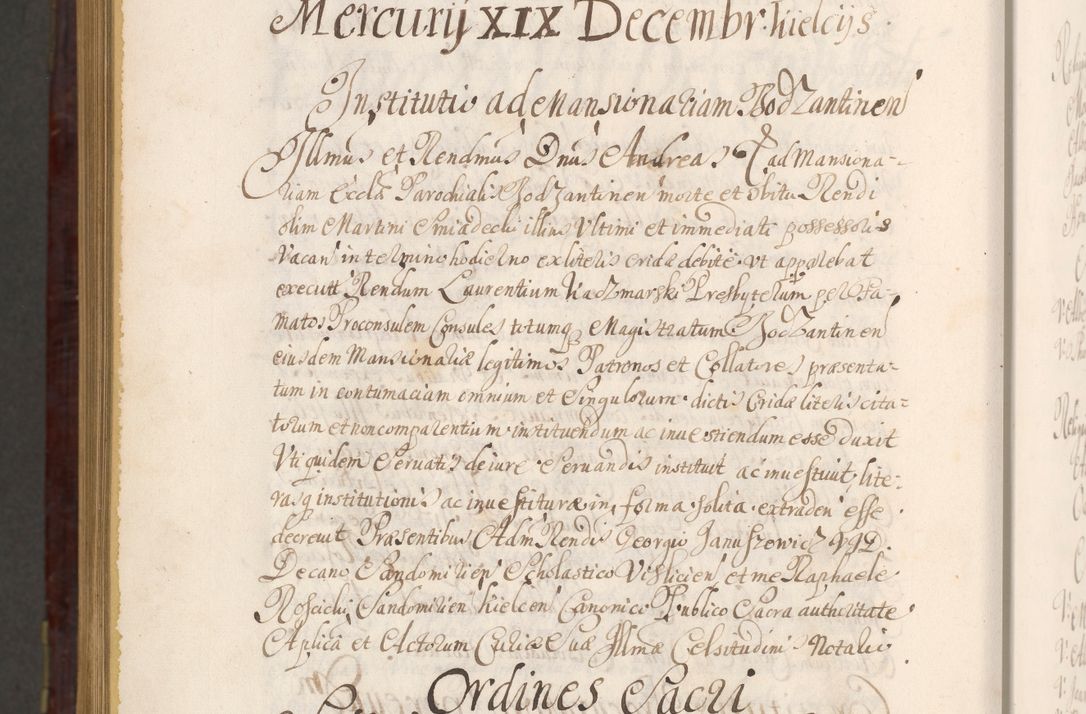 Mercurij XIX Decembr: Kielcijs.
Institutio ad Mansionariam Bodzantinen̄
Illmus et Rendmus Dnus Andreas ad Mansiona-
riam Eccla Parochialis Bodzantinen morte et obitu Rendi
olim Martini Smiadecki illius Ultimi et immediati possessoris
Vacan in termino hodierno ex literis cridæ debite ut apparebat
executt Rendum Laurentium Presbyterum per Fa-
matos Proconsulem Consules totumq Magistratum Bodzantinen
eiusdem Mansionariæ legitimos Patronos et Collatores præsenta-
tum in contumaciam omnium et Singulorum dictis Cridæ literis cita-
torum et non comparentium instituendum ac inuestiendum esse duxit
Vti quidem Seruatis de iure Seruandis instituit ac inuestiuit, lite-
rasq institutionis ac inuestituræ in forma solita extraden esse
decreuit Præsentibus Adm Rendis Georgio Januszowicz VJD.
Decano Sandomirien Scholastico Vislicien, et me Raphaele
Roscicki Sandomirien Kielcen Canonico Publico Sacra authoritate
Aplica et Actorum Curiæ Suæ Illmæ Celsitudinis Notario
Ordines Sacri